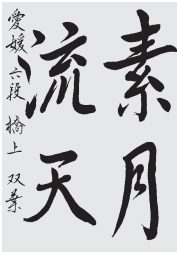 素月
流天
愛媛 六段 橋上 双葉